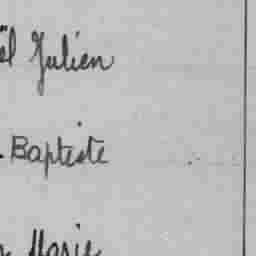 ël Julien
Baptiste
Marie